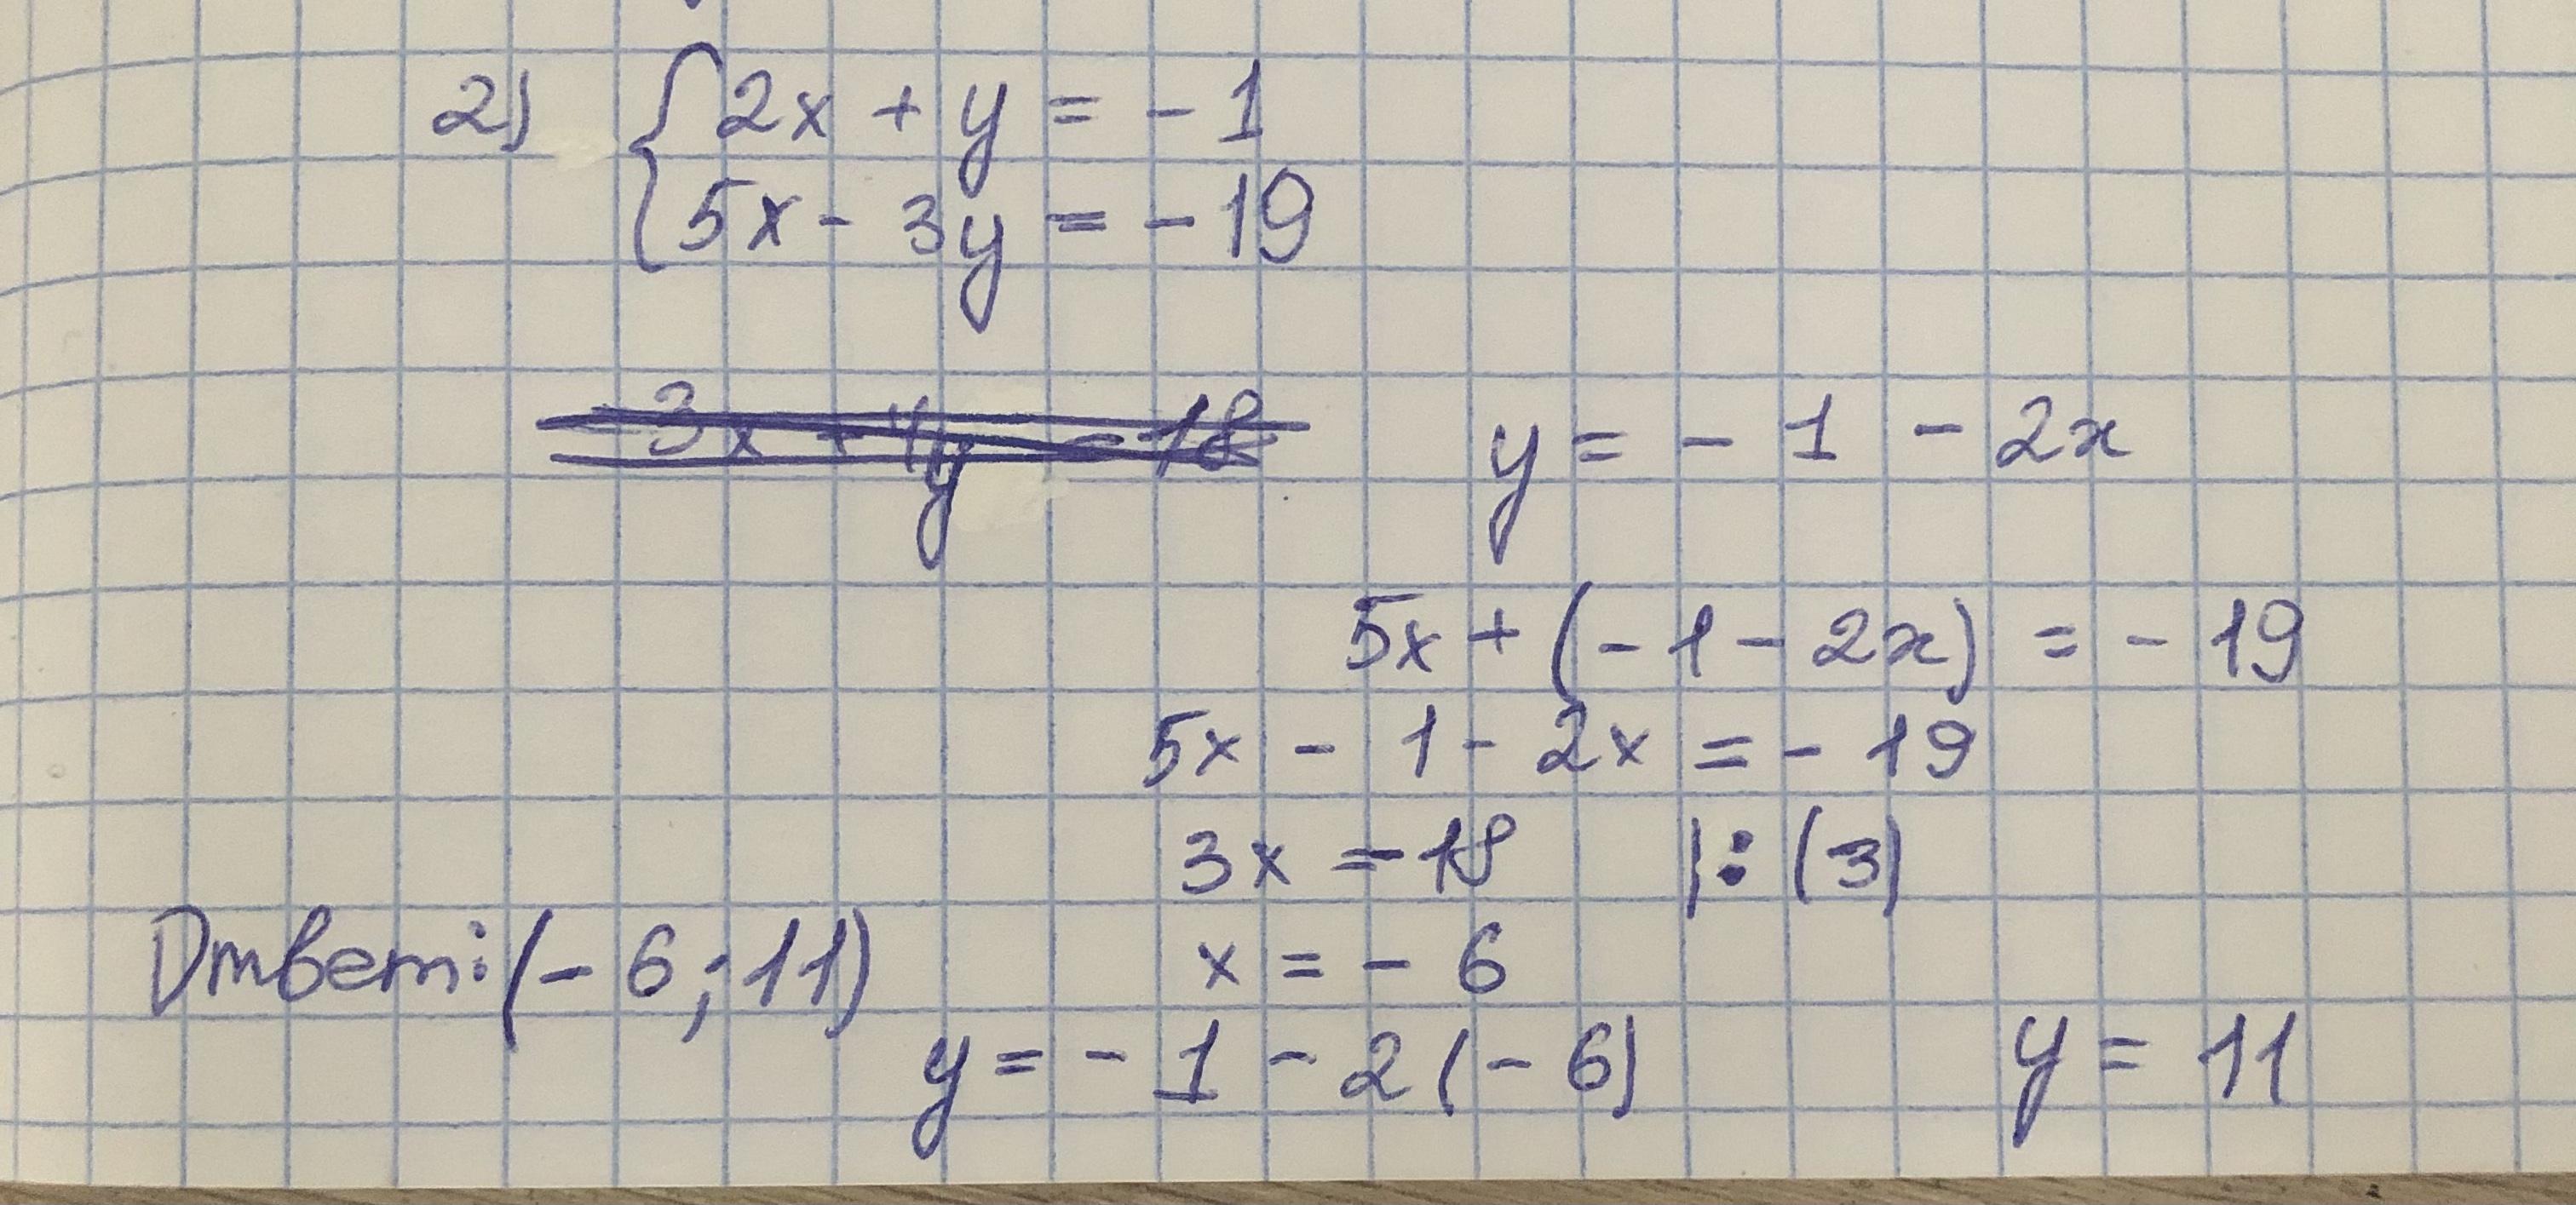 2) { 2x + y = - 1
5x - 3y = - 19
3x + 4y = 18
y = - 1 - 2x
5x + (- 1 - 2x) = - 19
5x - 1 - 2x = - 19
3x = -18 |: (3)
Ответ: (- 6; 11)
x = - 6
y = - 1 - 2 (- 6) y = 11